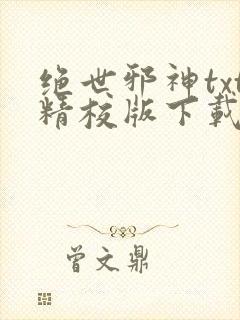 绝世邪神txt
精校版下载
曾文鼎